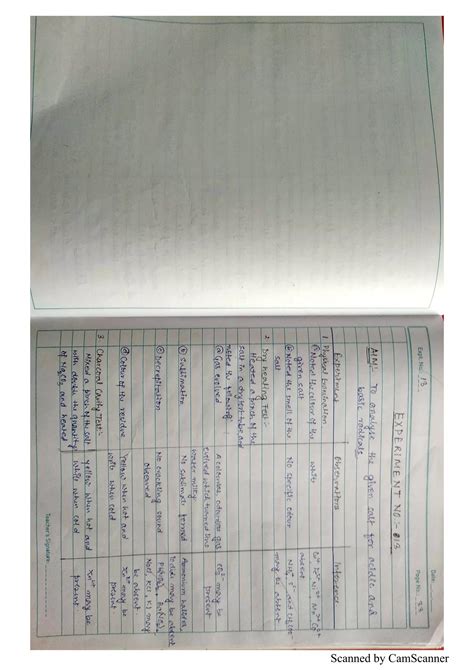 Date
Expt. No. 13
Page No. 33
EXPERIMENT NO:- 013
AIM:- To analyse the given salt for acidic and
basic radicals.
Experiment
Observations
Inference
1 Physical Examination
① Noted the colour of the
given salt
white
absent
② Noted the smell of the
salt
No specific odour
may be absent
2. Dry heating Test:-
Heated a pinch of the
salt in a dry test tube and
noted the following
@ Gas evolved
A colourless, odourless gas
evolved which turned lime
water milky
may be
present
⑥ Sublimation
No sublimate formed
Ammonium halides,
Iodides may be absent
© Decrepitation
No crackling sound
observed
NaCl, KCl, KI may
be absent
@ Colour of the residue
Yellow when hot and
white when cold
Zn²⁺ may be
present
3 Charcoal Cavity Test:-
Mixed a pinch of the salt
with double the quantity
of Na₂CO₃ and heated
Yellow when hot and
white when cold
Zn²⁺ may be
present
Teacher's Signature
Scanned by CamScanner